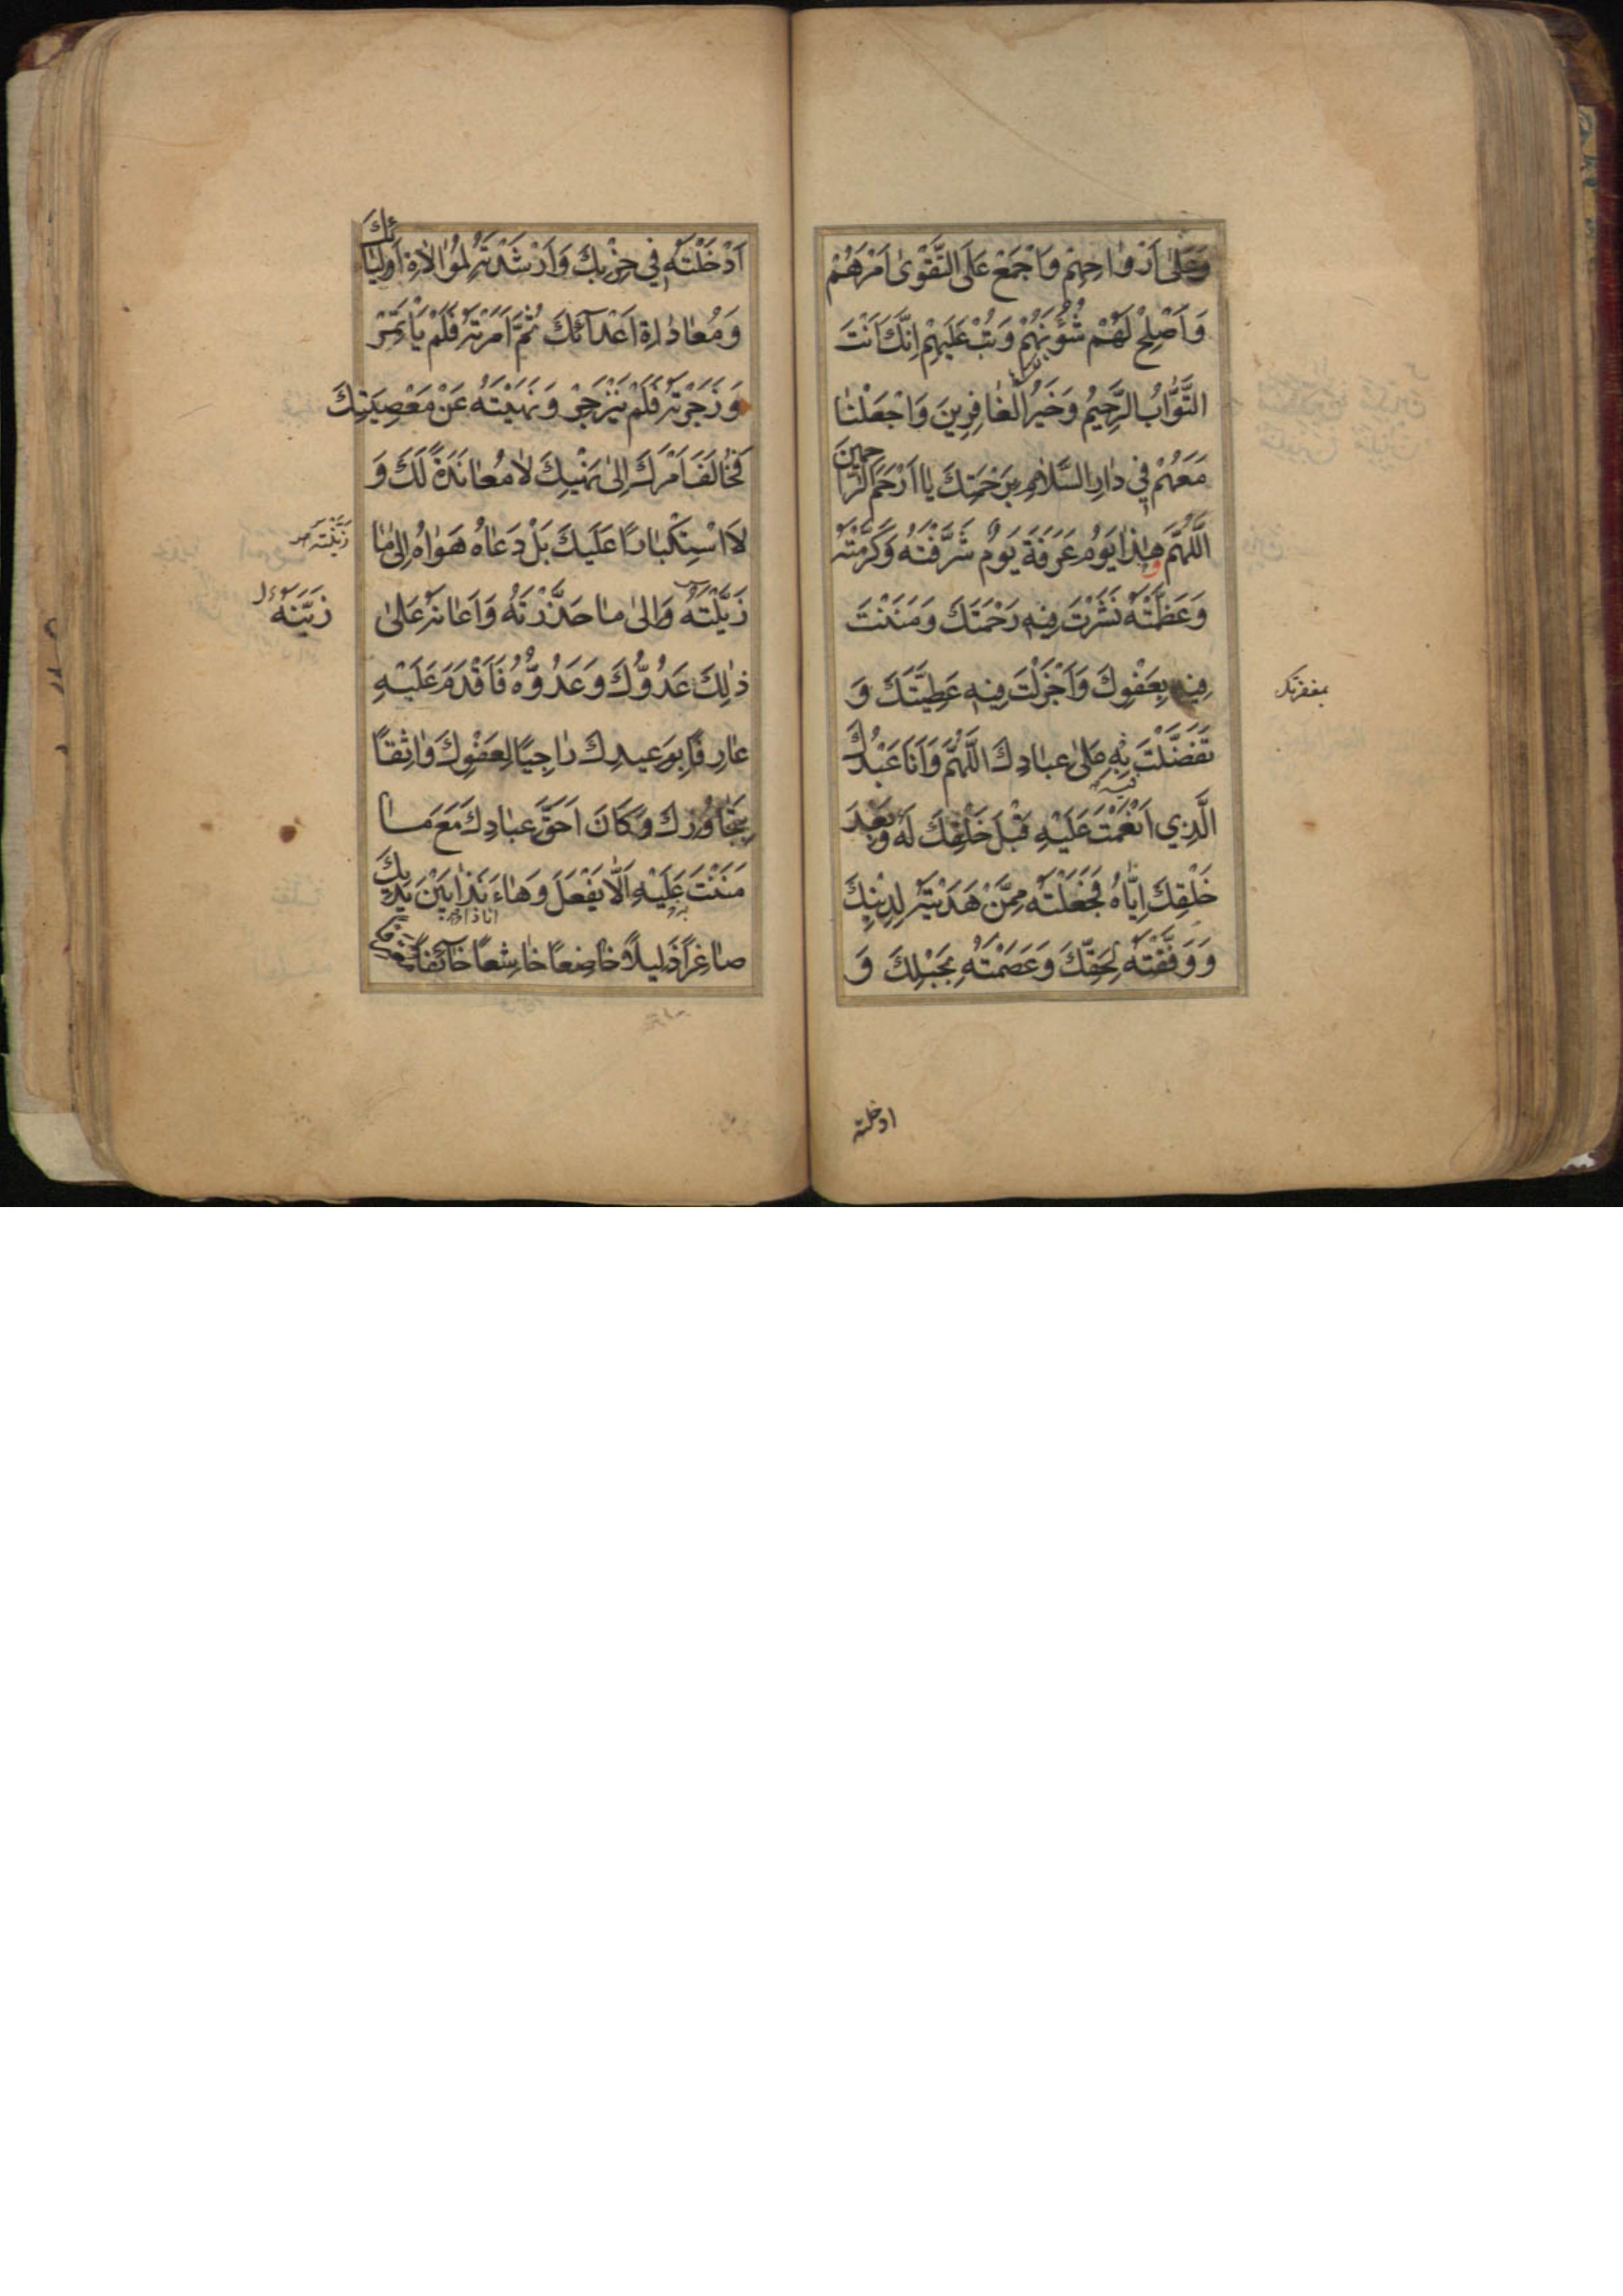 وَعَلىٰ اَرْوٰاحِهِمْ وَاجْمَعْ عَلَى التَّقْوىٰ اَمْرَهُمْ
وَاَصْلِحْ لَهُمْ شُؤُنَهُمْ وَتُبْ عَلَيْهِمْ اِنَّكَ اَنْتَ
التَّوّٰابُ الرَّحِيمُ وَخَيْرُ الْغٰافِرِينَ وَاجْعَلْنٰا
مَعَهُمْ فِي دٰارِ السَّلاٰمِ بِرَحْمَتِكَ يٰا اَرْحَمَ الرّٰاحِمِينَ
اَللّٰهُمَّ وهٰذٰا يَوْمُ عَرَفَةَ يَوْمٌ شَرَّفْتَهُ وَكَرَّمْتَهُ
وَعَظَّمْتَهُ نَشَرْتَ فِيهِ رَحْمَتَكَ وَمَنَنْتَ
فِيهِ بِعَفْوِكَ وَاَجْزَلْتَ فِيهِ عَطِيَّتَكَ وَ
بمغفرتک
تَفَضَّلْتَ بِهِ عَلىٰ عِبٰادِكَ اَللّٰهُمَّ وَاَنَا عَبْدُكَ
الَّذِي اَنْعَمْتَ عَلَيْهِ قَبْلَ خَلْقِكَ لَهُ وَبَعْدَ
خَلْقِكَ اِيّٰاهُ فَجَعَلْتَهُ مِمَّنْ هَدَيْتَهُ لِدِينِكَ
وَوَفَّقْتَهُ لِحَقِّكَ وَعَصَمْتَهُ بِحَبْلِكَ وَ
ادخلته
اَدْخَلْتَهُ فِي حِزْبِكَ وَاَرْشَدْتَهُ لِمُوٰالاٰةِ اَوْلِيٰائِكَ
وَمُعٰادٰاةِ اَعْدٰآئِكَ ثُمَّ اَمَرْتَهُ فَلَمْ يَأْتَمِرْ
وَزَجَرْتَهُ فَلَمْ يَنْزَجِرْ وَنَهَيْتَهُ عَنْ مَعْصِيَتِكَ
فَخٰالَفَ اَمْرَكَ اِلىٰ نَهْيِكَ لاٰ مُعٰانَدَةً لَكَ وَ
لاَ اسْتِكْبٰارًا عَلَيْكَ بَلْ دَعٰاهُ هَوٰاهُ اِلىٰ مٰا
زَيَّلْتَهُ وَاِلىٰ مٰا حَذَّرْتَهُ وَاَعٰانَهُ عَلىٰ
زَيَّنْتَهُ
ذٰلِكَ عَدُوُّكَ وَعَدُوُّهُ فَاَقْدَمَ عَلَيْهِ
عٰارِفًا بِوَعِيدِكَ رٰاجِيًا لِعَفْوِكَ وٰاثِقًا
بِتَجٰاوُزِكَ وَكَانَ اَحَقَّ عِبٰادِكَ مَعَ مَا
مَنَنْتَ عَلَيْهِ اَلاّٰ يَفْعَلَ وَهٰاءَنَذٰا بَيْنَ يَدَيْكَ
صٰاغِرًا ذَلِيلاً خٰاضِعًا خٰاشِعًا خٰآئِفًا